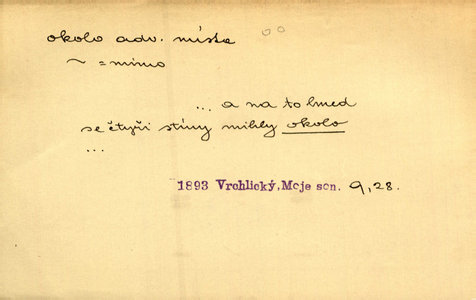 okolo adv. místa
~ = mimo
... a na to hned
se čtyři stíny mihly okolo
...
1893 Vrchlický, Moje son. 9, 28.